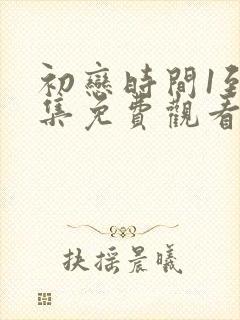 初戀時間1至
集免費觀看
扶摇晨曦